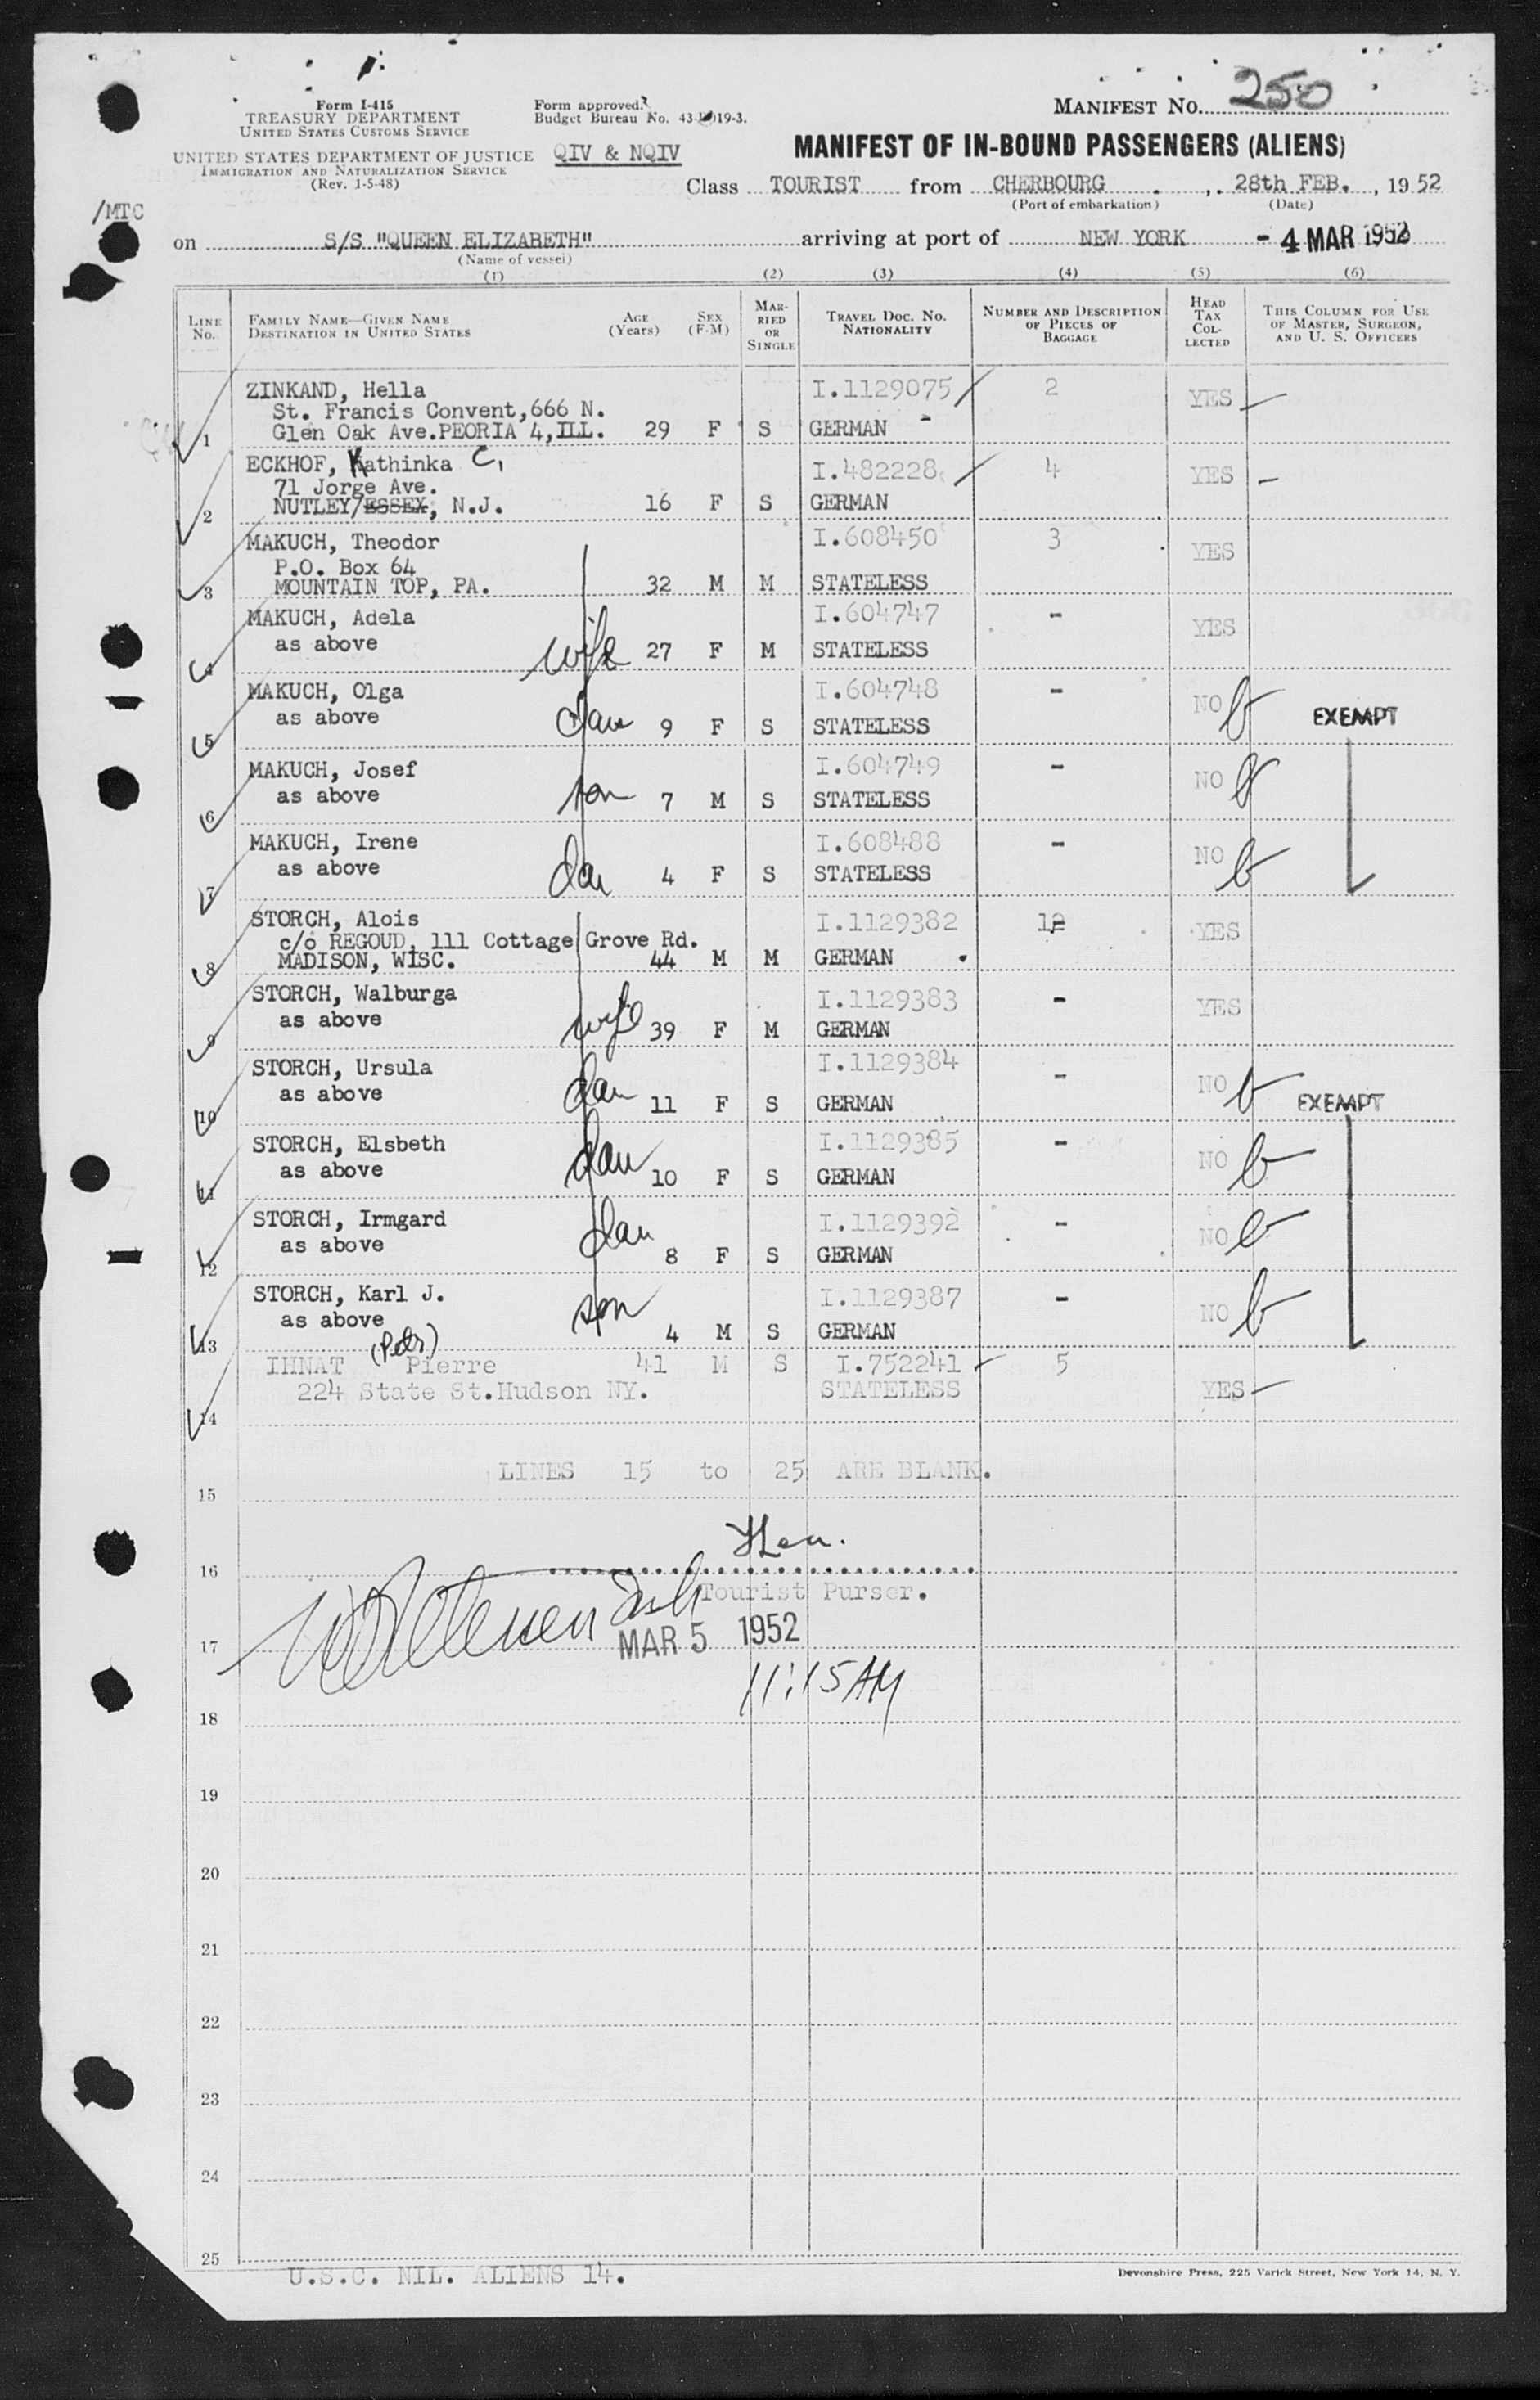 Form I-415
TREASURY DEPARTMENT
UNITED STATES CUSTOMS SERVICE
UNITED STATES DEPARTMENT OF JUSTICE
IMMIGRATION AND NATURALIZATION SERVICE
(Rev. 1-5-48)
Form approved.
Budget Bureau No. 43- 19-3.
QIV & NQIV
MANIFEST NO. 250
MANIFEST OF IN-BOUND PASSENGERS (ALIENS)
Class TOURIST from CHERBOURG, 28th FEB., 1952
(Port of embarkation) (Date)
/MTC
on S/S "QUEEN ELIZABETH" arriving at port of NEW YORK - 4 MAR 1952
(Name of vessel)
(1) (2) (3) (4) (5) (6)
LINE NO. FAMILY NAME—GIVEN NAME DESTINATION IN UNITED STATES AGE (Years) SEX (F-M) MARRIED OR SINGLE TRAVEL DOC. NO. NATIONALITY NUMBER AND DESCRIPTION OF PIECES OF BAGGAGE HEAD TAX COLLECTED THIS COLUMN FOR USE OF MASTER, SURGEON, AND U. S. OFFICERS
ZINKAND, Hella I.1129075 2 YES
St. Francis Convent, 666 N.
1 Glen Oak Ave. PEORIA 4, ILL. 29 F S GERMAN
ECKHOF, Kathinka C, I.482228 4 YES
71 Jorge Ave.
2 NUTLEY/ESSEX, N.J. 16 F S GERMAN
MAKUCH, Theodor I.608450 3 YES
P.O. Box 64
3 MOUNTAIN TOP, PA. 32 M M STATELESS
MAKUCH, Adela I.604747 - YES
4 as above wife 27 F M STATELESS
MAKUCH, Olga I.604748 - NO EXEMPT
5 as above dau 9 F S STATELESS
MAKUCH, Josef I.604749 - NO
6 as above son 7 M S STATELESS
MAKUCH, Irene I.608488 - NO
7 as above dau 4 F S STATELESS
STORCH, Alois I.1129382 12 YES
c/o REGOUD, 111 Cottage Grove Rd.
8 MADISON, WISC. 44 M M GERMAN
STORCH, Walburga I.1129383 - YES
9 as above wife 39 F M GERMAN
STORCH, Ursula I.1129384 - NO EXEMPT
10 as above dau 11 F S GERMAN
STORCH, Elsbeth I.1129385 - NO
11 as above dau 10 F S GERMAN
STORCH, Irmgard I.1129392 - NO
12 as above dau 8 F S GERMAN
STORCH, Karl J. I.1129387 - NO
13 as above son 4 M S GERMAN
IHNAT (Petr) Pierre 41 M S I.752241 5
224 State St. Hudson NY. STATELESS YES
14
LINES 15 to 25 ARE BLANK.
15
16
Tourist Purser.
MAR 5 1952
17
11:15 AM
18
19
20
21
22
23
24
25
U.S.C. NIL. ALIENS 14.
Devonshire Press, 225 Varick Street, New York 14, N. Y.